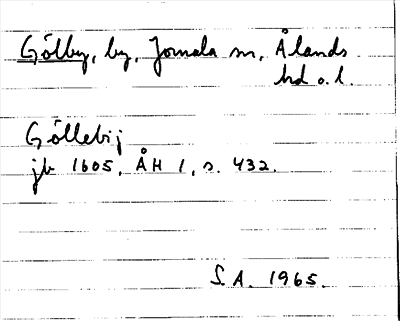 Gölby, by, Jomala sn, Ålands
hd o. l.
Göllebij
jb 1605, ÅH 1, s. 432.
S.A. 1965.